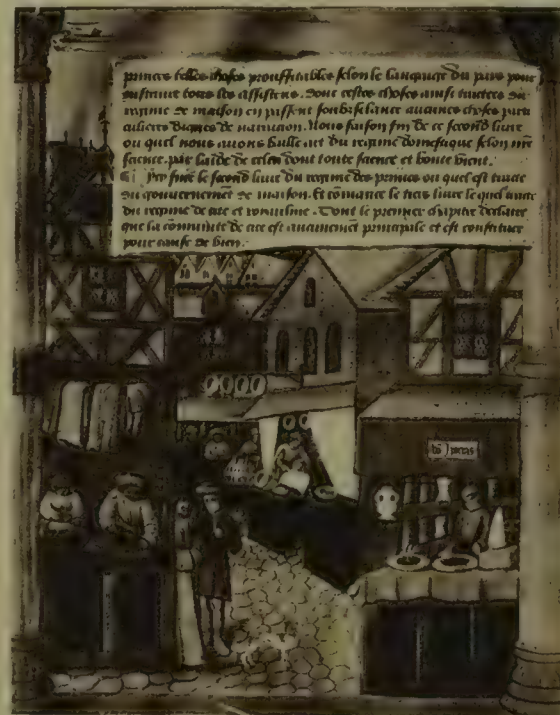 princes telles choses prouffitables selon le languige du pais pour
instruire tous les assistens. Dont cestes choses ainsi tractees du
regime de maison en passent soubz silance aucunes choses parti
culieres dignes de narracion. Nous faison fin de ce second livre
ou quel nous avons baille art du regime domestique selon nre
science. par laide de celui dont toute science et bonte vient.
Ci fine le second livre du regime des princes ou quel est traicte
du gouvernement de maison. Et comance le tiers livre le quel traicte
du regime de cite et royaulme. Dont le premier chapitre declaire
que la comunite de cite est aucunement principale et est constituee
pour cause de bien.